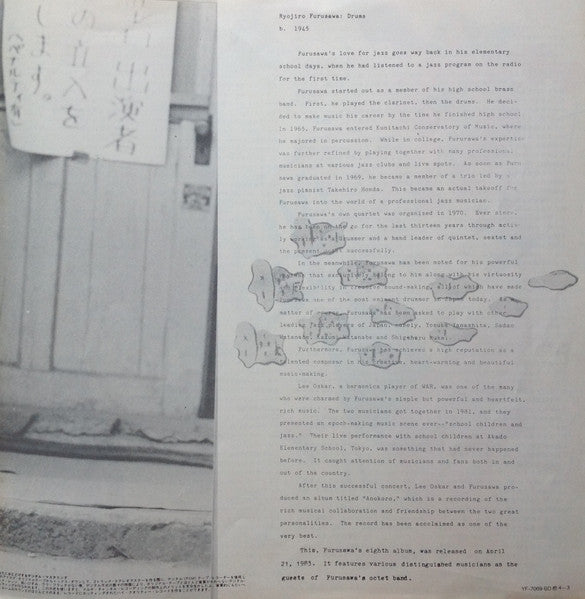 出演者
の立入を
します。
Ryojiro Furusawa: Drums
b. 1945
Furusawa's love for jazz goes way back in his elementary
school days, when he had listened to a jazz program on the radio
for the first time.
Furusawa started out as a member of his high school brass
band. First, he played the clarinet, then the drums. He deci-
ded to make music his career by the time he finished high school
In 1965, Furusawa entered Kunitachi Conservatory of Music, where
he majored in percussion. While in college, Furusawa's expertise
was further refined by playing together with many professional
musicians at various jazz clubs and live spots. As soon as Furu
sawa graduated in 1969, he became a member of a trio led by
jazz pianist Takehiro Honda. This became an actual takeoff for
Furusawa into the world of a professional jazz musician.
Furusawa's own quartet was organized in 1970. Ever since,
he has on go for the last thirteen years through activ-
drummer and a band leader of quintet, sextet and
the present successfully.
In the meanwhile, Furusawa has been noted for his powerful
that to him along with his virtuosity
flexibility in sound-making, all of which have made
one of the most drummer today.
matter of course, Furusawa has been asked to play with other
leading of Japan, namely, Yosuke Yamashita, Sadao
Watanabe, Watanabe and Shigeharu Mukai.
Furthermore, Furusawa achieved a high reputation as a
talented composer in his creative, heart-warming and beautiful
music-making.
Lee Oskar, a haramnica player of WAR, was one of the many
who were charmed by Furusawa's simple but powerful and heartfelt,
rich music. The two musicians got together in 1981, and they
presented an epoch-making music scene ever--"school children and
jazz." Their live performance with school children at Akado
Elementary School, Tokyo, was something that had never happened
before. It caught attention of musicians and fans both in and
out of the country.
After this successful concert, Lee Oskar and Furusawa pro-
duced an album titled "Anokuro," which is a recording of the
rich musical collaboration and friendship between the two great
personalities. The record has been acclaimed as one of the
very best.
This, Furusawa's eighth album, was released on April
21, 1983. It features various distinguished musicians as the
guests of Furusawa's octet band.